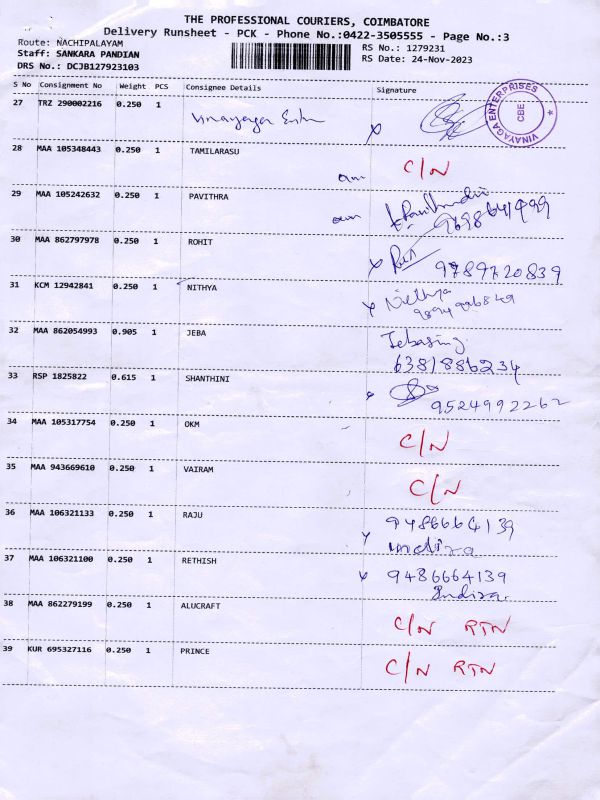 THE PROFESSIONAL COURIERS, COIMBATORE
Delivery Runsheet - PCK - Phone No.:0422-3505555 - Page No.:3
Route: NACHIPALAYAM RS No.: 1279231
Staff: SANKARA PANDIAN RS Date: 24-Nov-2023
DRS No.: DCJB127923103
S No Consignment No Weight PCS Consignee Details Signature
27 TRZ 290002216 0.250 1 Vinayaga x
VINAYAGA ENTERPRISES ★ CBE
28 MAA 105348443 0.250 1 TAMILARASU C/N
29 MAA 105242632 0.250 1 PAVITHRA
30 MAA 862797978 0.250 1 ROHIT x
9789720839
31 KCM 12942841 0.250 1 NITHYA x Nithya
32 MAA 862054993 0.905 1 JEBA Jebasing
6381886234
33 RSP 1825822 0.615 1 SHANTHINI x
9524992262
34 MAA 105317754 0.250 1 OKM C/N
35 MAA 943669610 0.250 1 VAIRAM C/N
36 MAA 106321133 0.250 1 RAJU 9486664139
x Indira
37 MAA 106321100 0.250 1 RETHISH x 9486664139
Indira.
38 MAA 862279199 0.250 1 ALUCRAFT C/N RTN
39 KUR 695327116 0.250 1 PRINCE C/N RTN